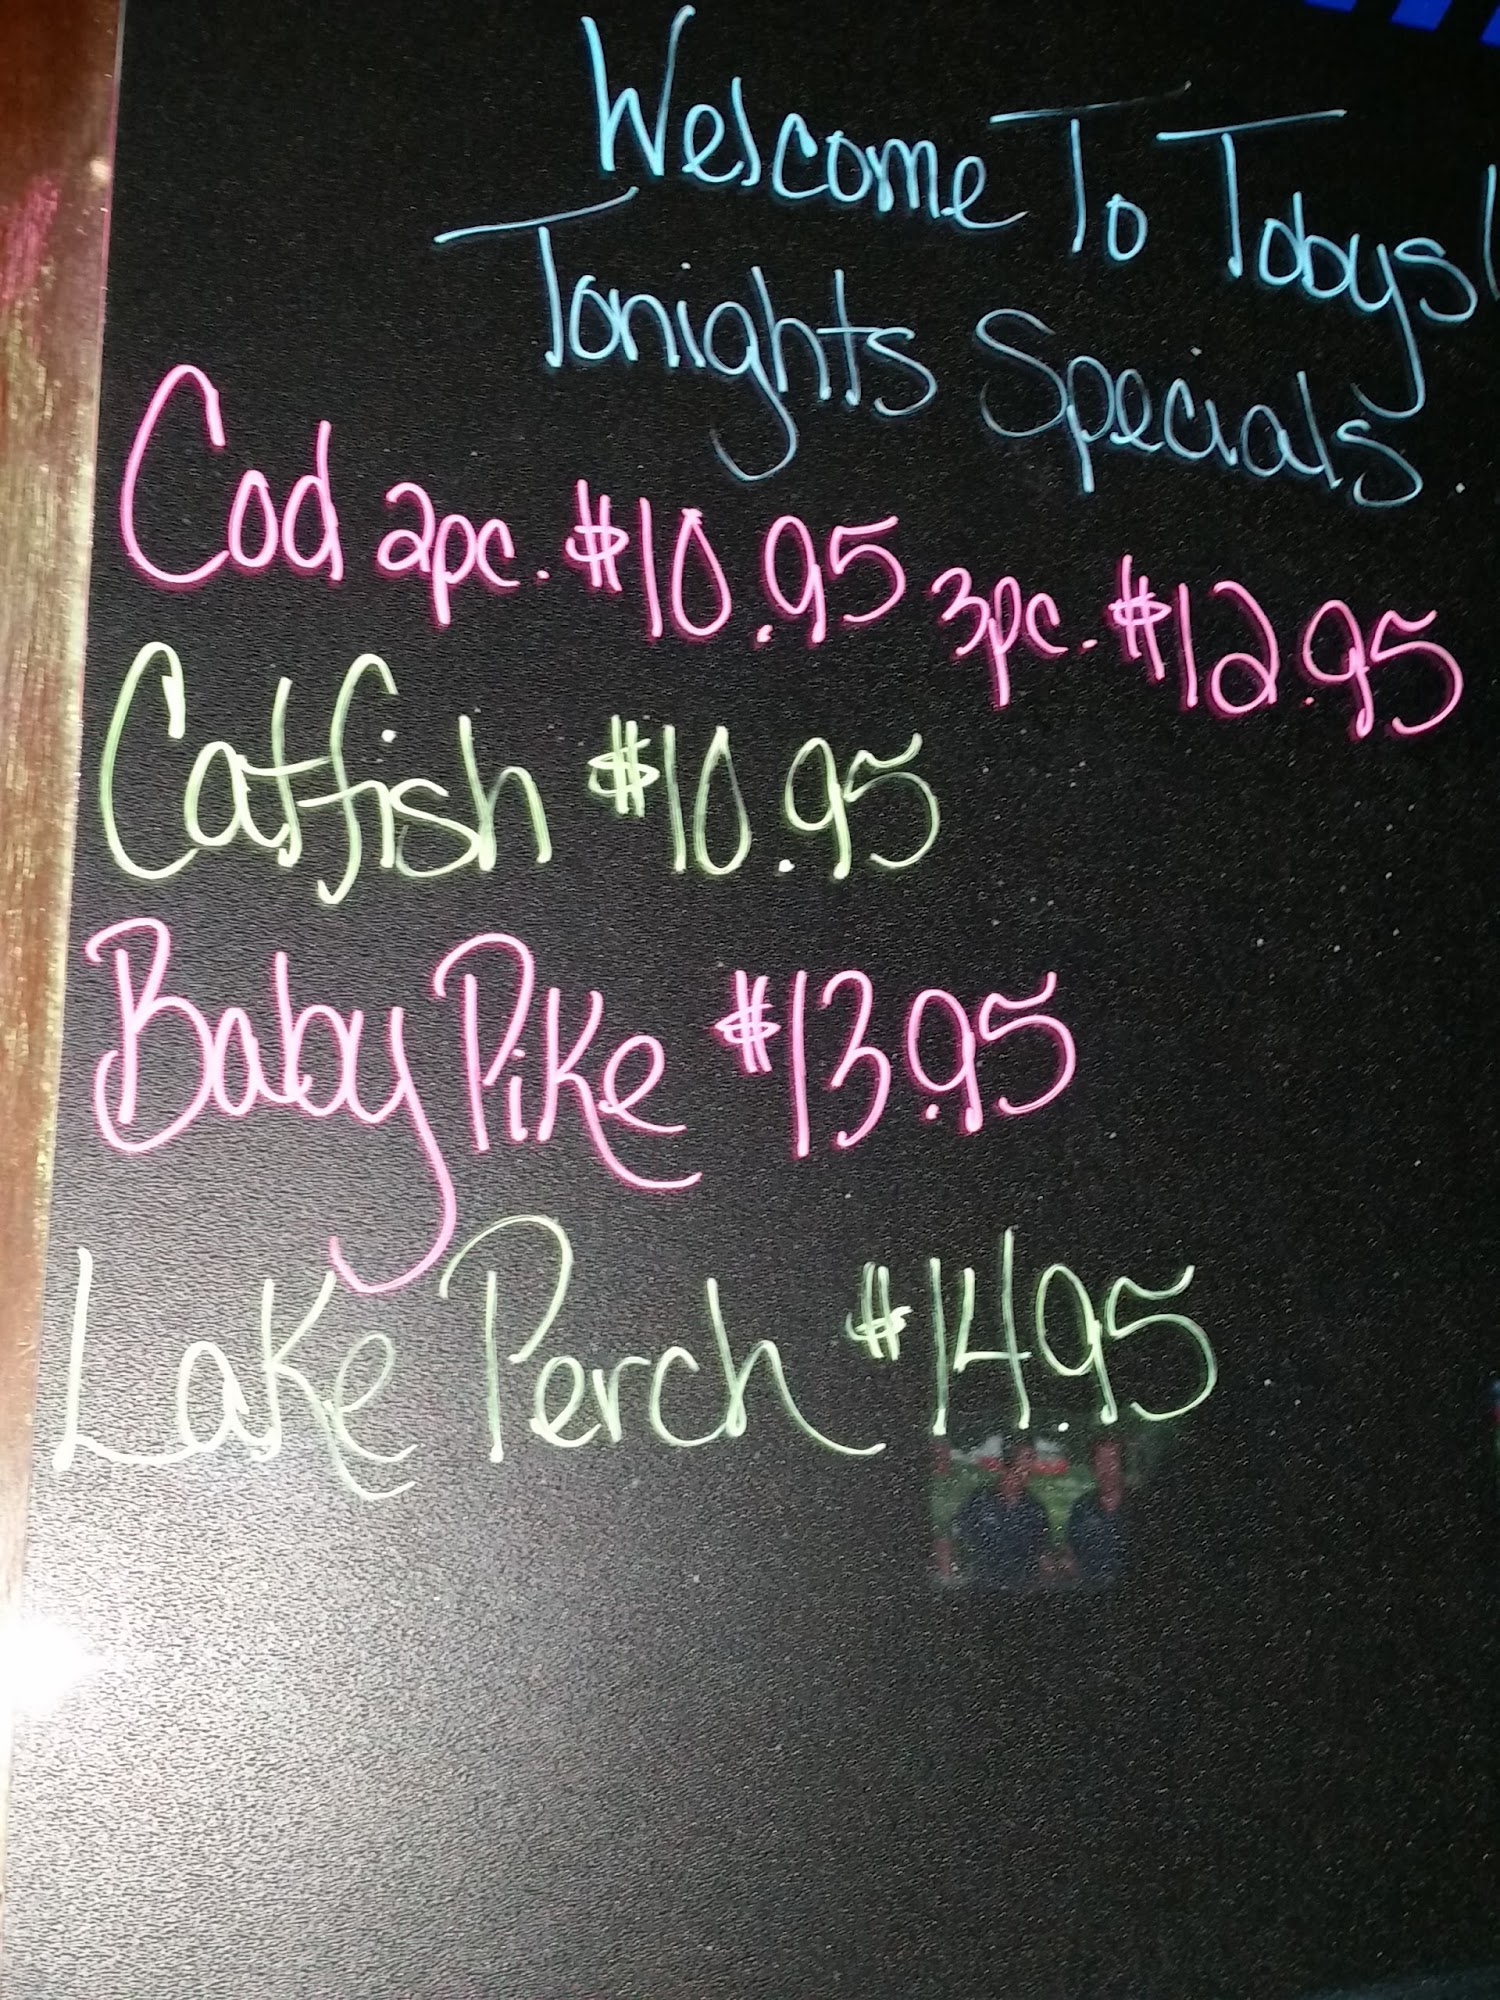 Welcome To Tobys!
Tonights Specials
Cod 2pc. $10.95 3pc. $12.95
Catfish $10.95
Baby Pike $13.95
Lake Perch $14.95